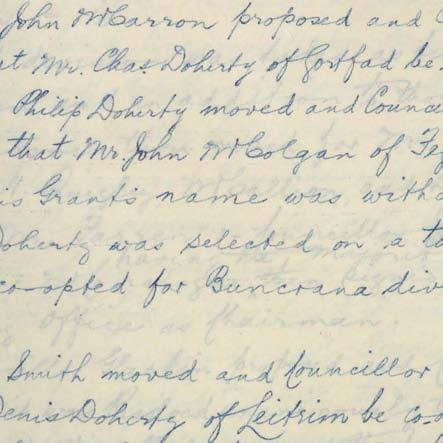 John McCarron proposed and
at Mr. Chas. Doherty of Gortfad be
Philip Doherty moved and Counc
that Mr. John McColgan of
is Grant's name was withd
Doherty was selected on a
co-opted for Buncrana div
office as Chairman.
Smith moved and Councillor
Denis Doherty of Leitrim be co-